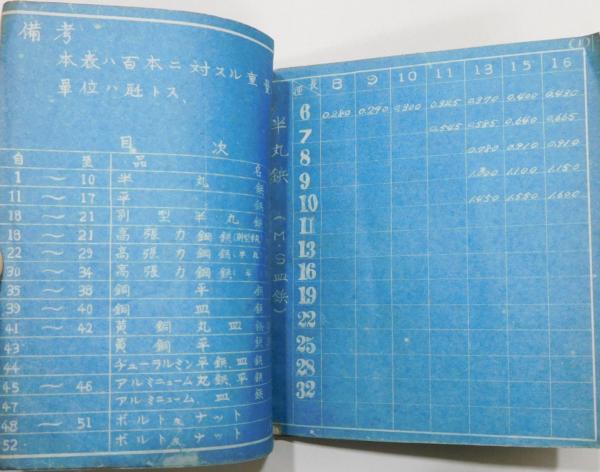 備考
本表ハ百本ニ対スル重量
單位ハ瓩トス、
目 次
自 至 品 名
1 ~ 10 半 丸 鋲
11 ~ 17 平 鋲
18 ~ 21 別 型 半 丸
18 ~ 21 高張力鋼鋲
22 ~ 29 高張力鋼鋲
30 ~ 34 高張力鋼鋲
35 ~ 38 鋼 平 鋲
39 ~ 40 鋼 皿
41 ~ 42 黄銅丸皿
43 黄銅平
44 ヂューラルミン平鋲皿鋲
45 ~ 46 アルミニューム丸鋲平鋲
47 アルミニューム 皿
48 ~ 51 ボルト及ナット
52 ボルト及ナット
半丸鋲 (M.S皿鋲)
(1)
径 長 8 9 10 11 13 15 16
6 0.280 0.290 0.300 0.345 0.370 0.400 0.430
7 0.545 0.585 0.640 0.665
8 0.780 0.910 0.910
9 1.150
10 1.450 1.550 1.600
11
13
16
19
22
25
28
32